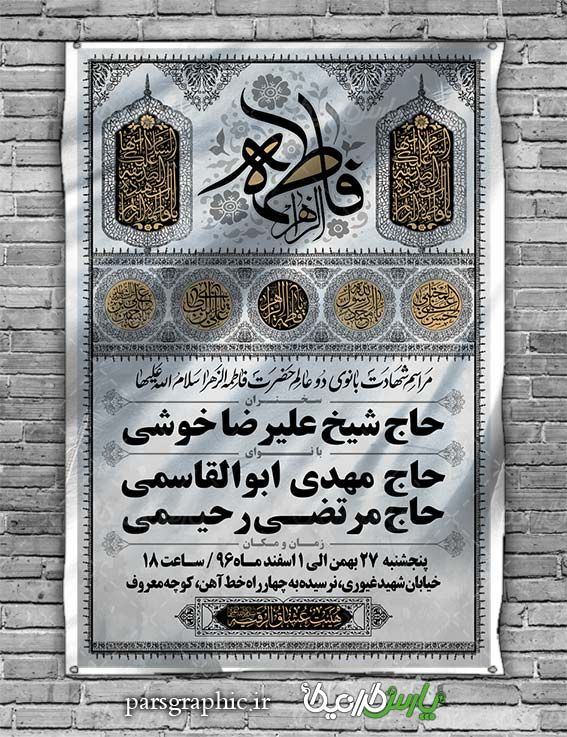 فاطمه
الزهرا
مراسم شهادت بانوی دو عالم حضرت فاطمه الزهرا سلام الله علیها
سخنران
حاج شیخ علیرضا خوشی
با نوای
حاج مهدی ابوالقاسمی
حاج مرتضی رحیمی
زمان و مکان
پنجشنبه ۲۷ بهمن الی ۱ اسفند ماه ۹۶ / ساعت ۱۸
خیابان شهید غیوری، نرسیده به چهارراه خط آهن، کوچه معروف
هیئت عشاق الرقیه
parsgraphic.ir پارس گرافیک